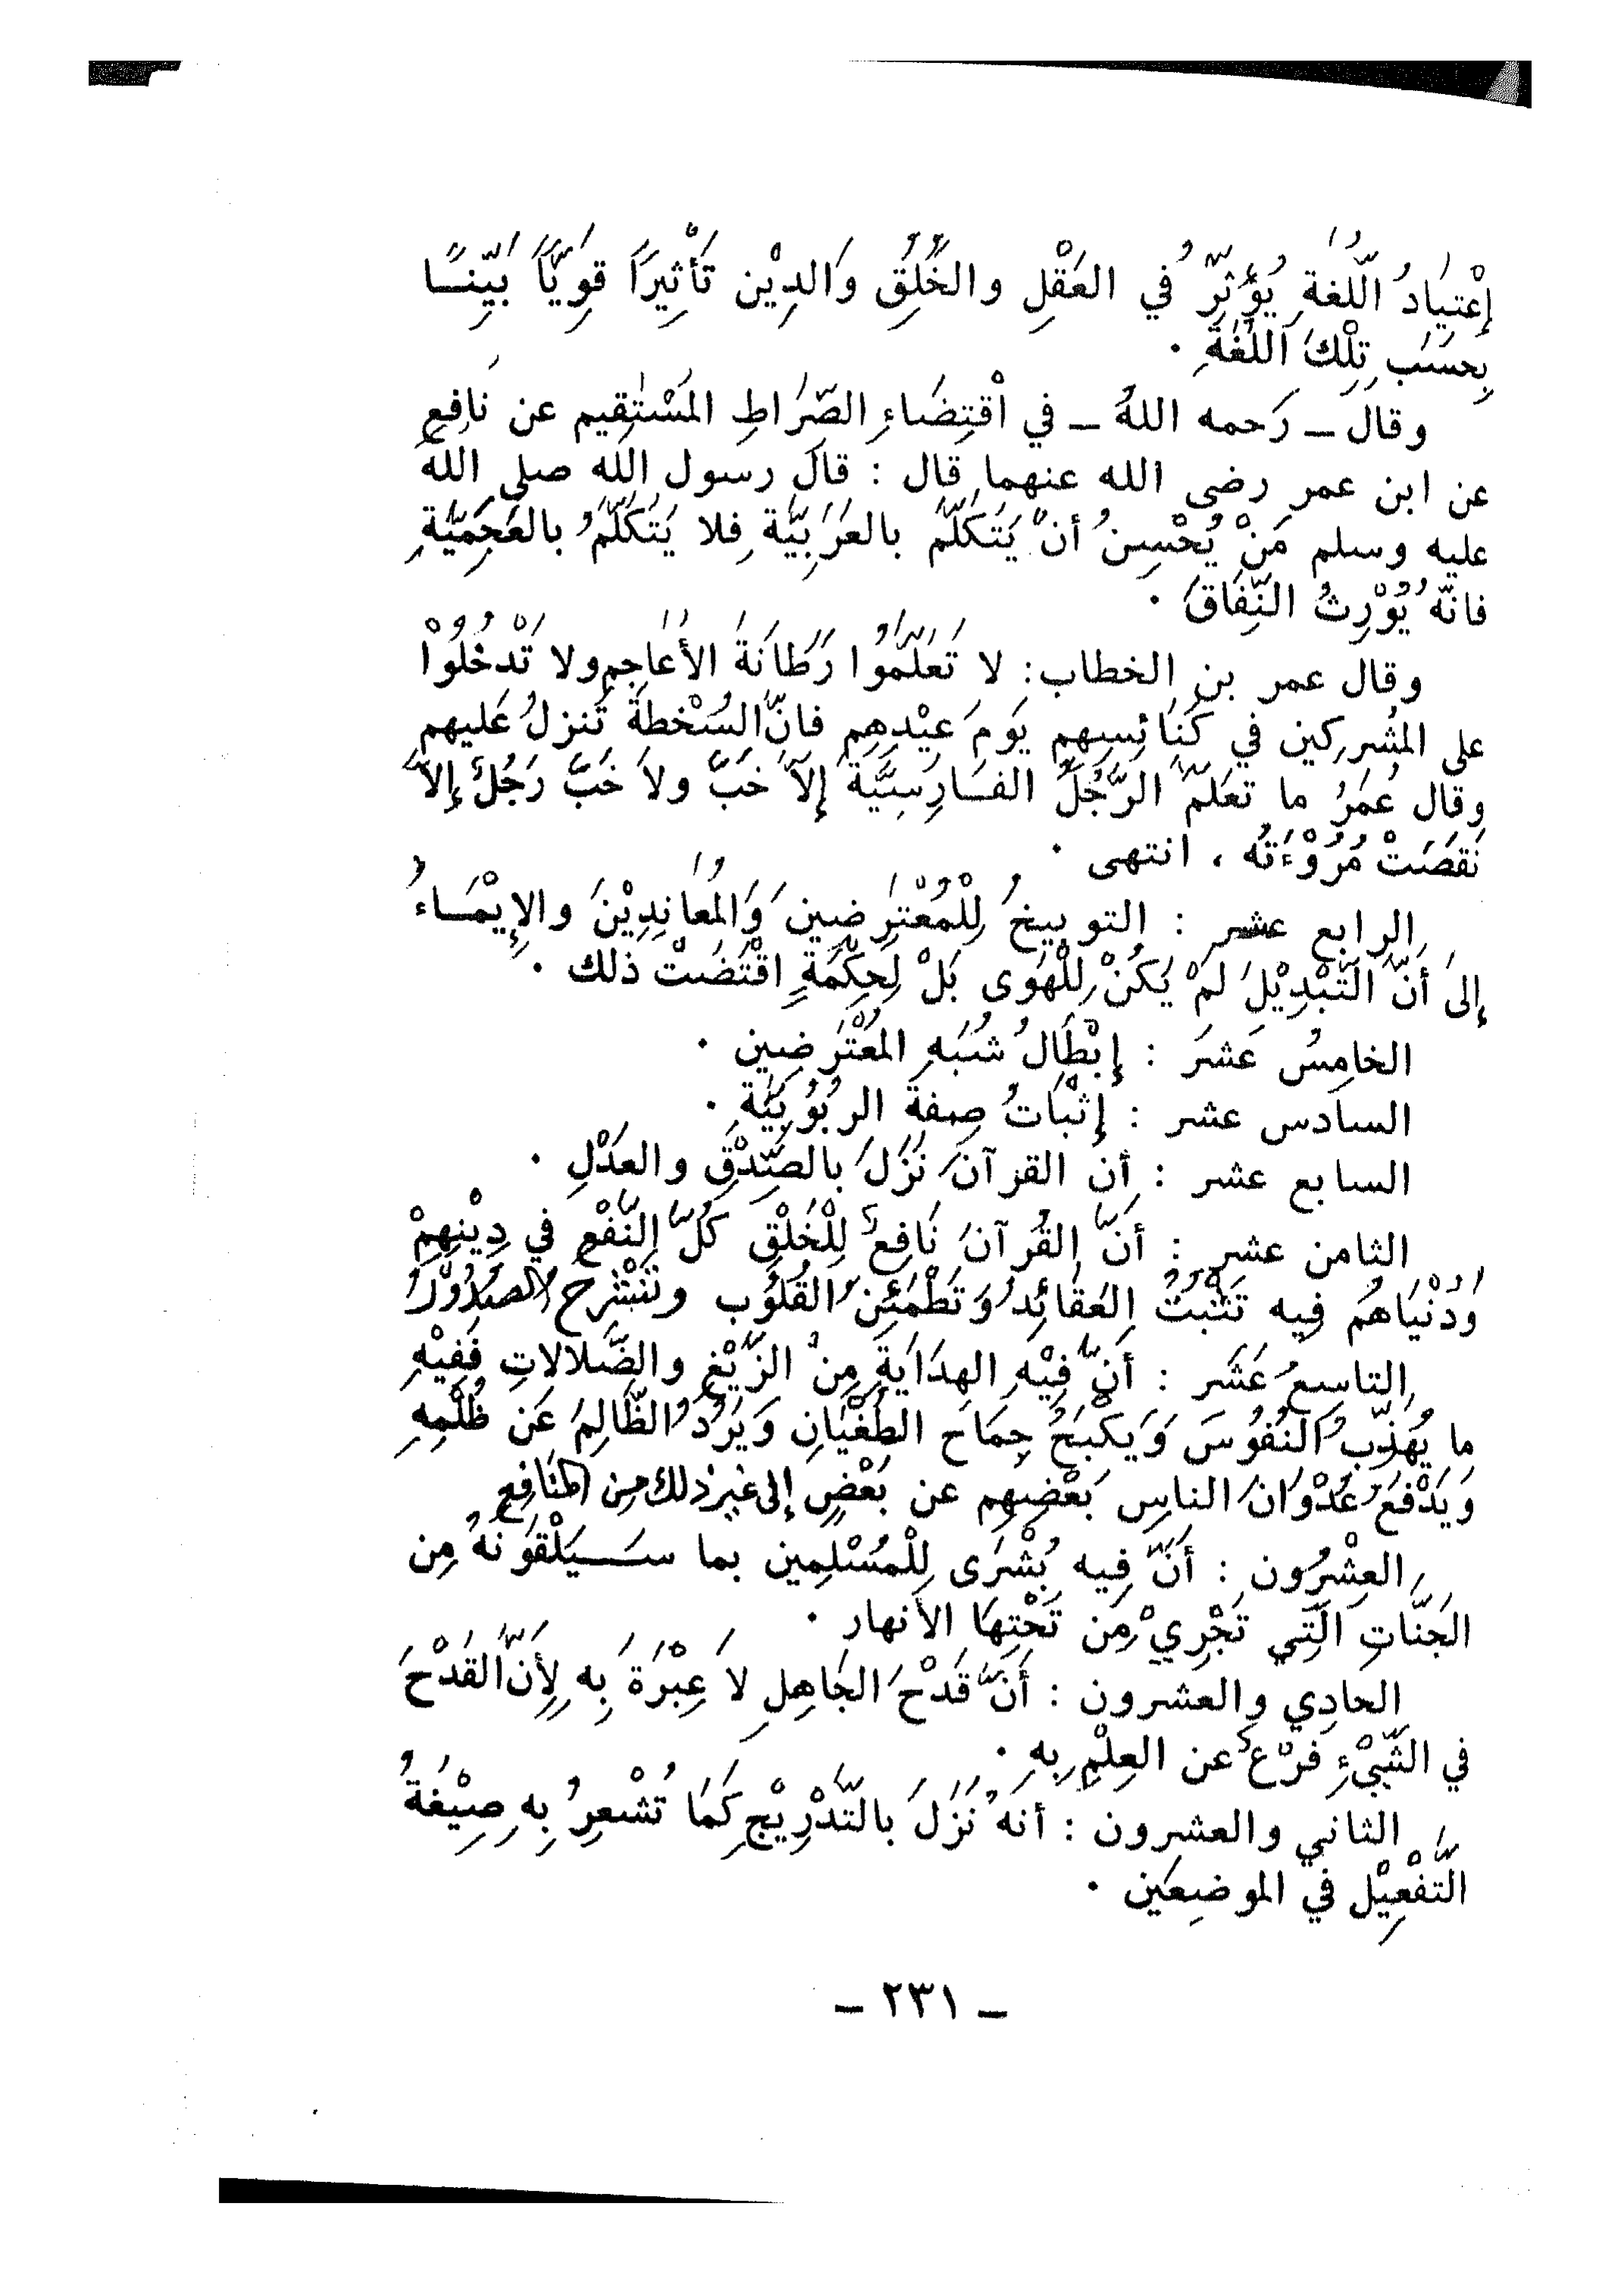 إِعْتِيَادُ اللُّغَةِ يُؤَثِّرُ في العَقْلِ والخُلُقِ وَالدِيْنِ تَأْثِيرَاً قوِيَّاً بَيِّنًا
بِحسَبِ تِلْكَ اللُّغَةِ .
وقالَ ــ رَحمه اللهُ ــ في اقْتِضَاءِ الصِّرَاطِ المُسْتَقِيم عن نَافِعٍ
عن ابن عمر رضي الله عنهما قال : قالَ رسول الله صلى اللهُ
عليه وسلم مَنْ يُحْسِنُ أنْ يَتَكَلَّمَ بالعَرَبِيَّةِ فلا يَتَكَلَّمُ بالعَجَمِيَّةِ
فانَّهُ يُوْرِثُ النِّفَاقَ .
وقال عمر بن الخطاب : لا تَعَلَّمُوا رَطَانَةَ الأَعَاجِمِ ولا تَدْخُلُوْا
على المشْرِكين في كَنَائسِهِم يَومَ عيْدِهِم فانَّ السُخْطَةَ تَنزلُ عَليهم
وقال عُمَرُ ما تعَلمَّ الرَّجُلُ الفَارسِيَّةَ إلاَّ خَبَّ ولاَ خَبَّ رَجُلٌ إلاَّ
نَقصَتْ مُرُوْءَتُه ، انتهى .
الرابع عشر : التوبيخُ لِلْمُعْتَرِضينَ وَالمُعَانِدِيْنَ والإيْمَاءُ
إلىَ أَنَّ التَّبْدِيْلَ لَمْ يَكُنْ لِلْهَوَى بَلْ لِحِكْمَةٍ اقْتَضَتْ ذلك .
الخامِسُ عَشرَ : إبْطَالُ شُبَهِ المُعْتَرِضين .
السادس عشر : إثْبَاتُ صِفةَ الرُبُوْبِيَّةِ .
السابع عشر : أن القرآنَ نَزَلَ بالصِّدْقِ والعَدْلِ .
الثامن عشر : أنَّ القُرآنَ نَافِعٌ لِلْخَلْقِ كُلَّ النَّفْعِ في دِيْنِهِمْ
وَدُنْيَاهُم فيه تَثْبُتُ العَقَائِدُ وَتَطْمَئِنُ القُلُوب وتَنْشَرِحُ الصُدُوْرُ
التاسِعُ عَشَر : أَنَّ فِيْهِ الهِدَايَةَ مِنْ الزَّيْغِ والضَّلالاتِ فَفِيْهِ
ما يُهَذِّبُ النُفُوْسَ وَيَكْبَحُ جِمَاحَ الطُغْيَانِ وَيَرُدُّ الظَّالِمَ عَن ظُلْمِهِ
وَيَدْفَعُ عُدْوَانَ الناس بَعْضِهِم عن بَعْضٍ إلى غيْرِ ذلك مِن المنَافِع
العِشْرُون : أَنَّ فِيه بُشْرَى لِلْمُسْلِمِين بما سَيَلْقَوْنَهُ مِن
الجَنَّاتِ التِي تَجْرِيْ مِن تَحْتِهَا الأنهار .
الحادِي والعشرون : أَنَّ قَدْحَ الجَاهِلِ لاَ عِبْرَةَ بِه لِأَنَّ القَدْحَ
في الشَّيْءِ فرْعٌ عن العِلْمِ بِهِ .
الثاني والعشرون : أنهُ نَزَلَ بالتَّدْرِيْجِ كَمَا تُشْعِرُ بِهِ صِيْغَةُ
التَّفْعِيْل في الموضِعَين .
ــ ٢٣١ ــ